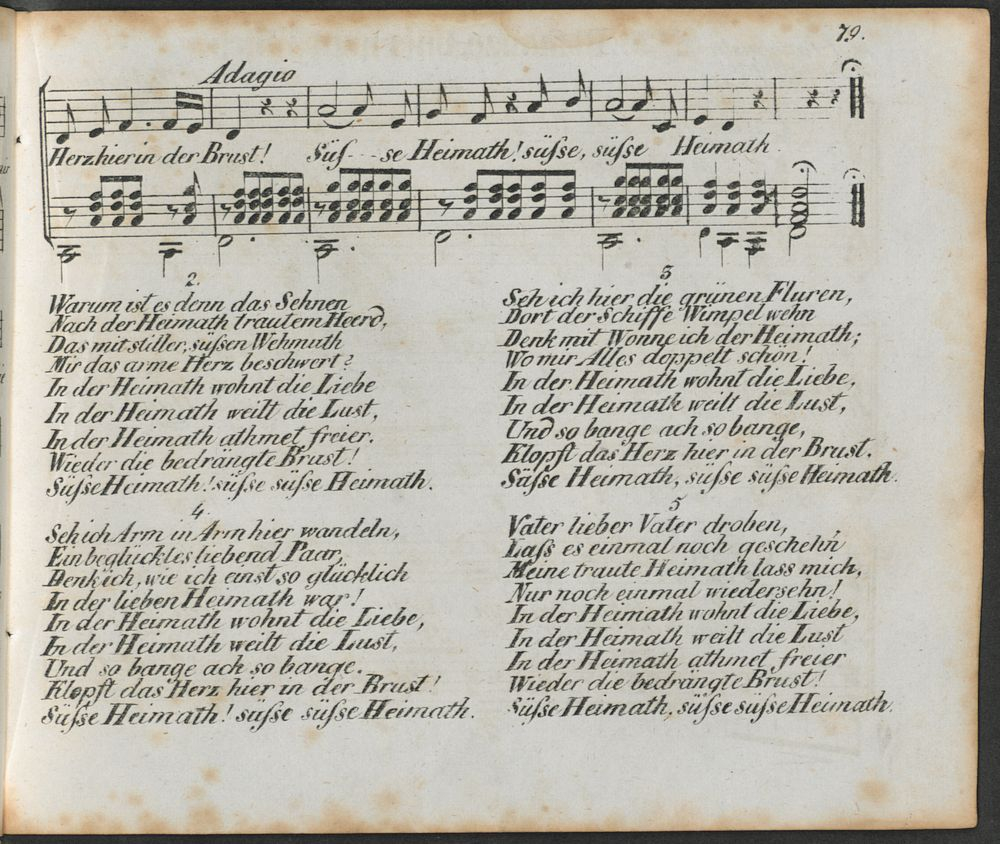 79.
Adagio
Herz hier in der Brust! Süs - - se Heimath! süsse, süsse Heimath.
2.
Warum ist es denn das Sehnen
Nach der Heimath trautem Heerd,
Das mit stiller, süssen Wehmuth
Mir das arme Herz beschwert?
In der Heimath wohnt die Liebe
In der Heimath weilt die Lust,
In der Heimath athmet freier.
Wieder die bedrängte Brust!
Süsse Heimath! süsse süsse Heimath.
3
Seh ich hier die grünen Fluren,
Dort der Schiffe Wimpel wehn
Denk mit Wonne ich der Heimath;
Wo mir Alles doppelt schön!
In der Heimath wohnt die Liebe,
In der Heimath weilt die Lust,
Und so bange ach so bange,
Klopft das Herz hier in der Brust.
Süsse Heimath, süsse süsse Heimath.
4.
Seh ich Arm in Arm hier wandeln,
Ein beglücktes liebend Paar,
Denk ich, wie ich einst so glücklich
In der lieben Heimath war!
In der Heimath wohnt die Liebe,
In der Heimath weilt die Lust,
Und so bange ach so bange.
Klopft das Herz hier in der Brust!
Süsse Heimath! süsse süsse Heimath.
5
Vater lieber Vater droben,
Lass es einmal noch geschehn
Meine traute Heimath lass mich,
Nur noch einmal wiedersehn!
In der Heimath wohnt die Liebe,
In der Heimath weilt die Lust
In der Heimath athmet freier
Wieder die bedrängte Brust!
Süsse Heimath, süsse süsse Heimath.